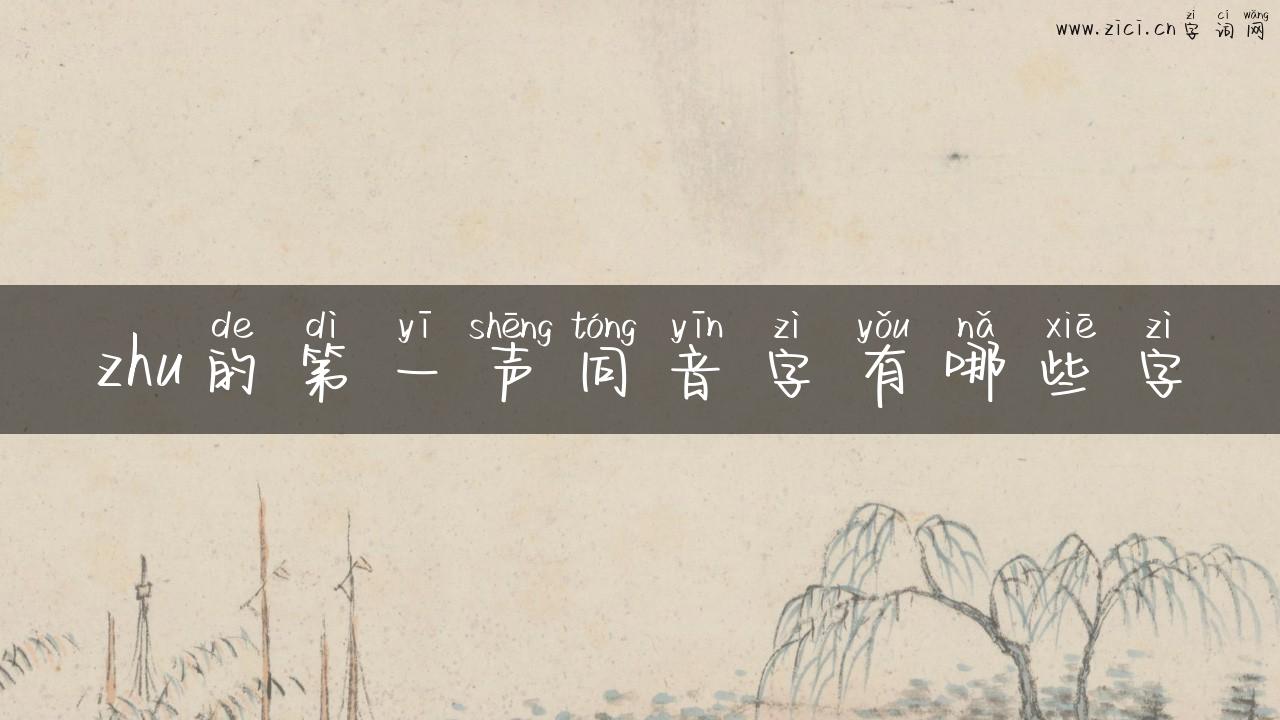 zì cí wǎng
www.zici.cn字词网
de dì yī shēng tóng yīn zì yǒu nǎ xiē zì
zhu的第一声同音字有哪些字